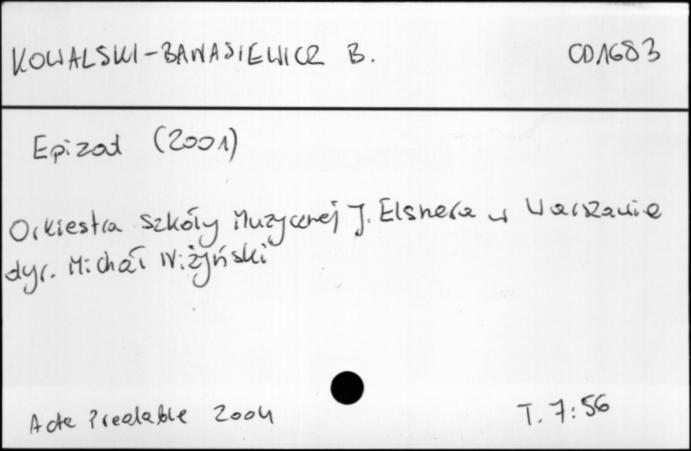 KOWALSKI-BANASIEWICZ B. CD1683
Epizod (2001)
Orkiestra Szkoły Muzycznej J. Elsnera w Warszawie
dyr. Michał Niżyński
Acte Prealable 2004 T. 7:56